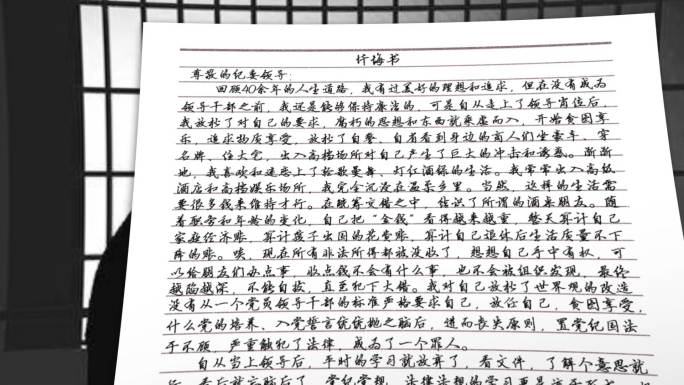 忏悔书
尊敬的纪委领导:
回顾40余年的人生道路，我有过美好的理想和追求，但在没有成为
领导干部之前，我还是能够保持廉洁的，可是自从走上了领导岗位后，
我放松了对自己的要求，腐朽的思想和东西就乘虚而入，开始贪图享
乐，追求物质享受，放松了自警、自省看到身边的商人们坐豪车、穿
名牌、住大宅，出入高档场所对自己产生了巨大的冲击和诱惑。渐渐
地，我喜欢和迷恋上了轻歌曼舞、灯红酒绿的生活。我常常出入高级
酒店和高档娱乐场所，我完全沉浸在温柔乡里。当然，这样的生活需
要很多钱来维持才行。在觥筹交错之中，结识了所谓的酒桌朋友。随
着职务和年龄的变化，自己把“金钱”看得越来越重，整天算计自己
家庭经济账，算计孩子出国的花费账，算计自己退休后生活质量不下
降的账。唉，现在所有非法所得都被没收了，想想自己手中有权，可
以给朋友们办点事，收点钱不会有什么事，也不会被组织发现，最终
越陷越深，不能自拔，直至犯下大错。我对自己放松了世界观的改造
没有从一个党员领导干部的标准严格要求自己，放任自己，贪图享受，
什么党的培养、入党誓言统统抛之脑后，进而丧失原则，置党纪国法
于不顾，严重触犯了法律，成为了一个罪人。
自从当上领导后，平时的学习就放弃了，看文件，了解个意思就
行，看后就忘脑后了，党纪党规、法律法规的学习更是